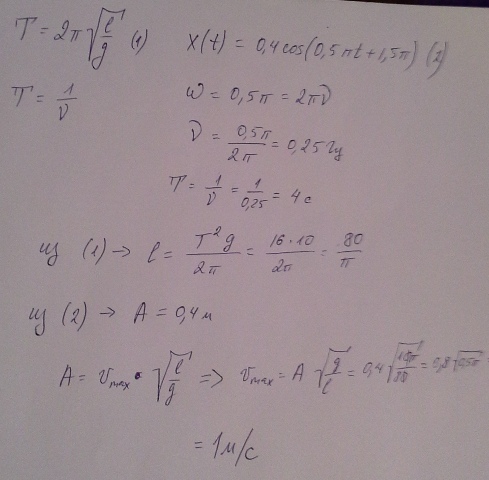 T = 2π√(l/g) (1)
X(t) = 0,4cos(0,5πt+1,5π) (2)
T = 1/ν
ω = 0,5π = 2πν
ν = 0,5π/2π = 0,25 Гц
T = 1/ν = 1/0,25 = 4 с
из (1) → l = T²g/2π = 16·10/2π = 80/π
из (2) → A = 0,4 м
A = v_max·√(l/g) => v_max = A √(g/l) = 0,4√(10π/80) = 0,8√0,5π
= 1 м/с